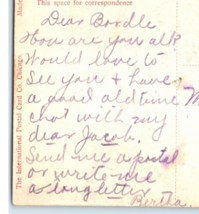 This space for correspondence
Dear Bordle
How are you all?
Would love to
See you & have
a good old time
chat with my
dear Jacob.
Send me a postal
or write me
a long letter
Bertha.
The International Postal Card Co. Chicago